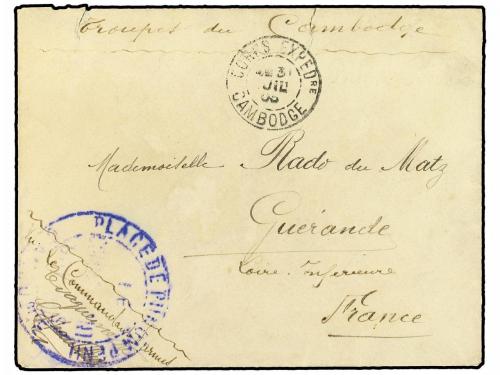 Troupes du Cambodge
CORPS EXPEDRE
31
JUIL
CAMBODGE
Mademoiselle Rado du Matz
Guérande
Loire-Inférieure
France
PLACE DE
Vu. Le Commandant d'armes